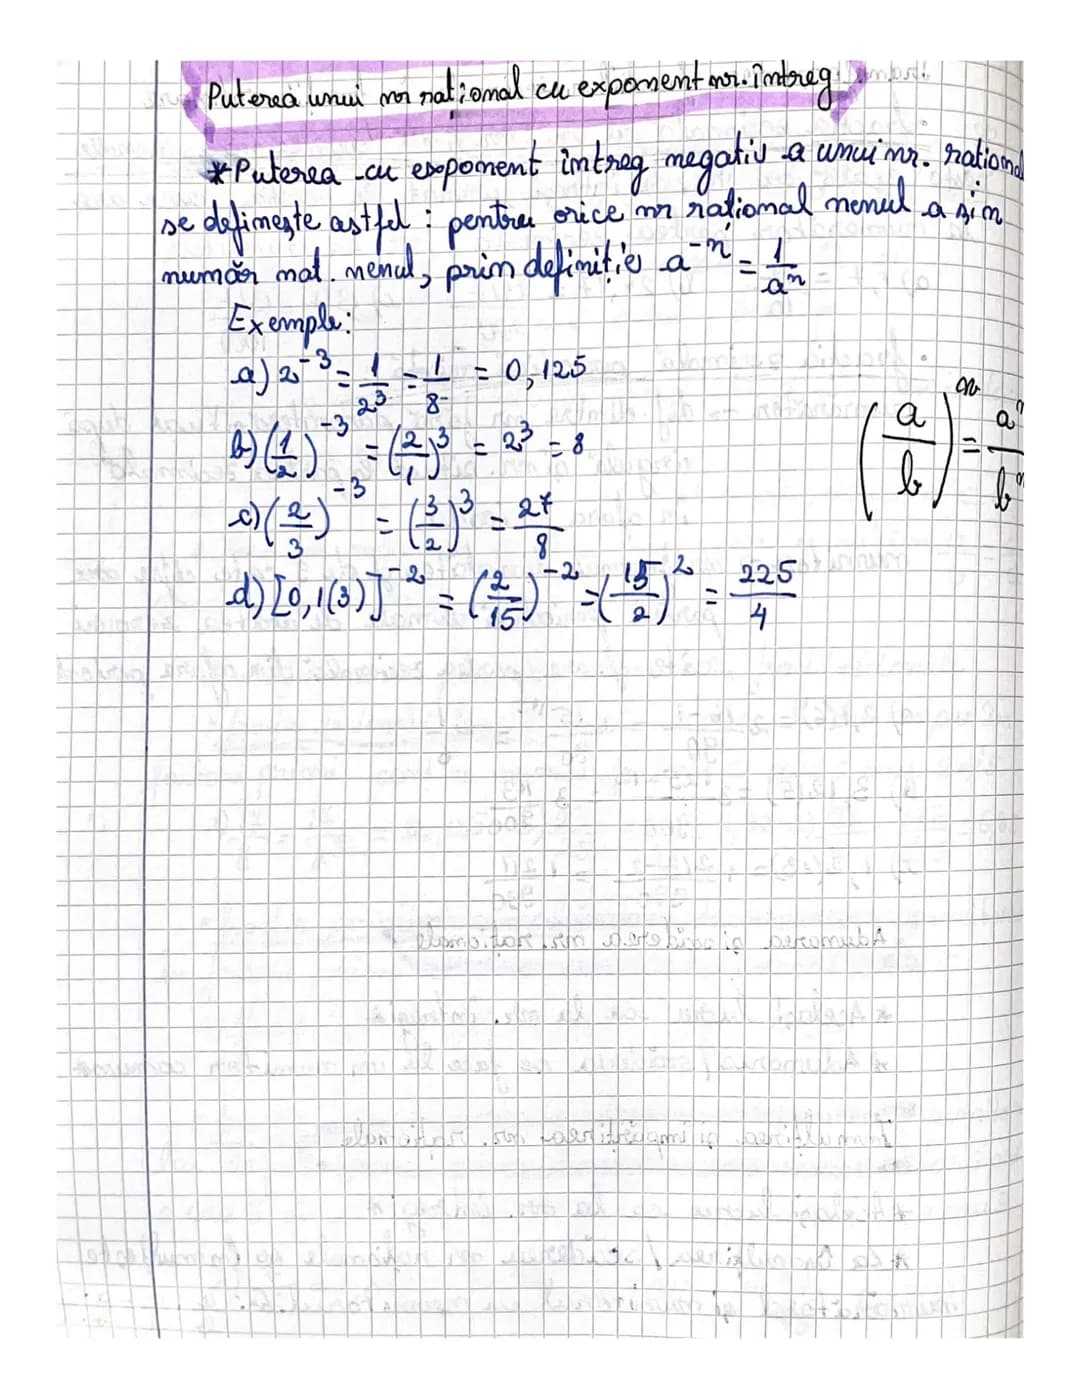 Puterea unui nr rațional cu exponent nr. întreg
* Puterea cu exponent întreg negativ a unui nr. rațional
se definește astfel : pentru orice nr rațional nenul a și n
număr nat. nenul, prin definiție a⁻ⁿ = 1/aⁿ
Exemple:
a) 2⁻³ = 1/2³ = 1/8 = 0,125
b) (1/2)⁻³ = (2/1)³ = 2³ = 8
c) (2/3)⁻³ = (3/2)³ = 27/8
d) [0,1(3)]⁻² = (2/15)⁻² = (15/2)² = 225/4
(a/b)ⁿ = aⁿ/bⁿ